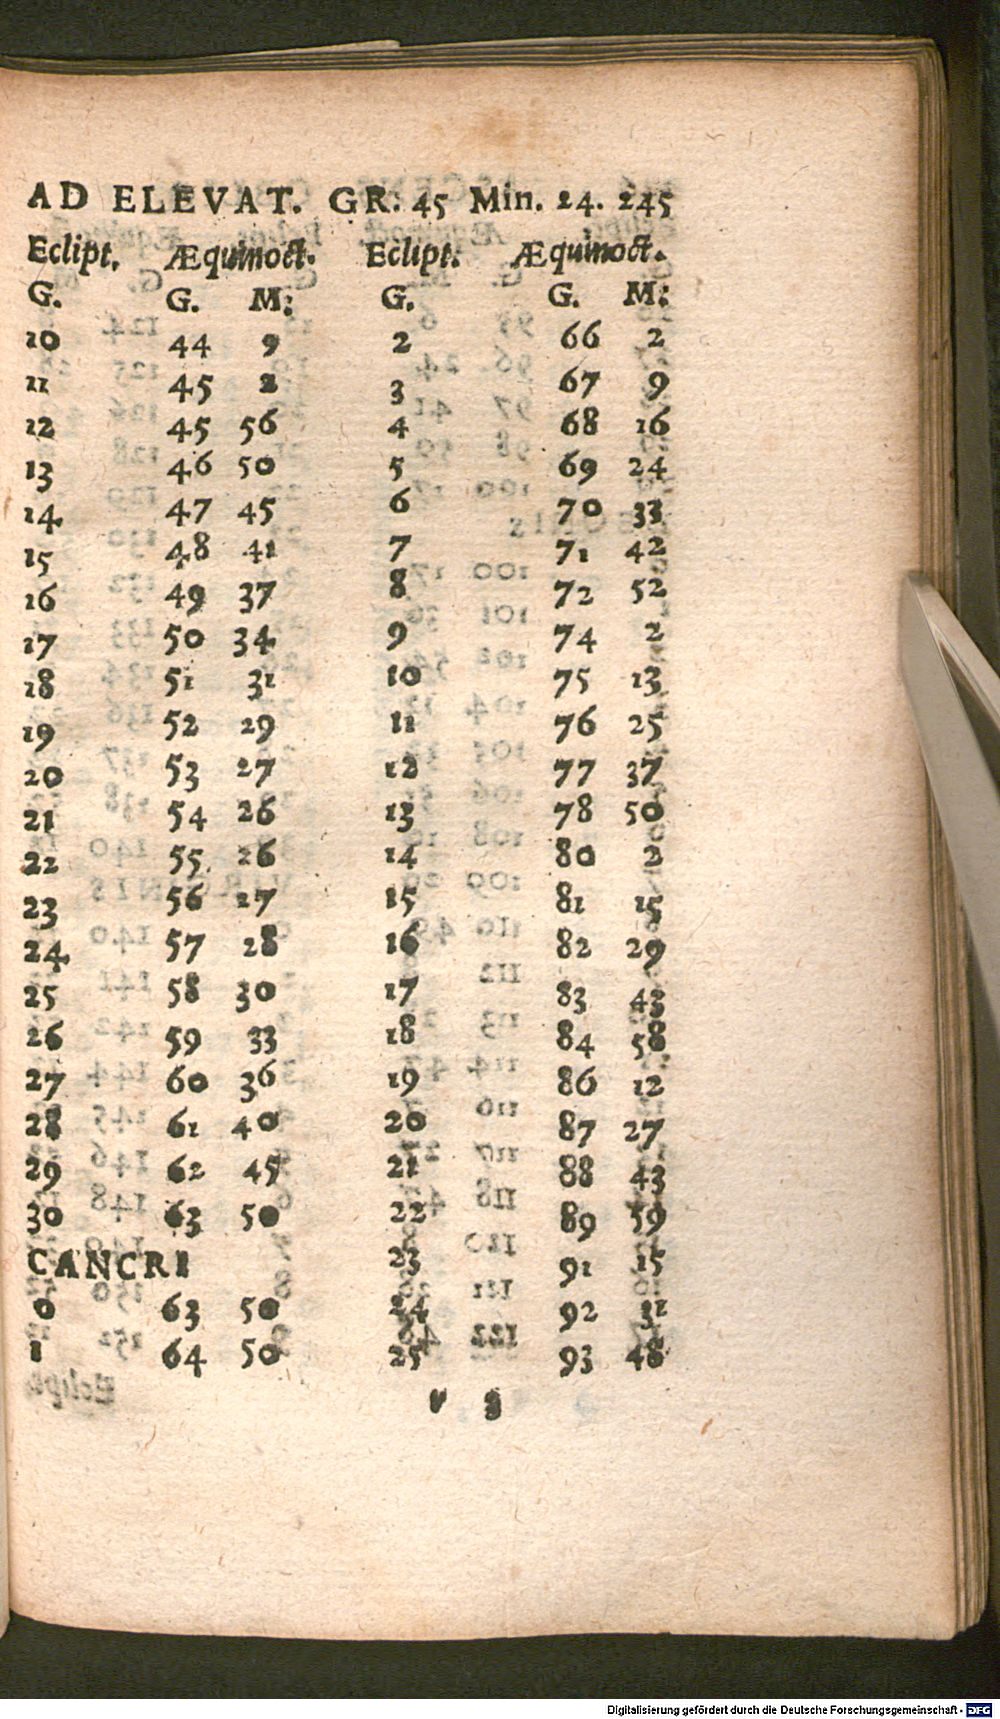 AD ELEVAT. GR: 45 Min. 24. 245
Eclipt. Æquinoct. Eclipt. Æquinoct.
G. G. M: G. G. M:
10 44 9 2 66 2
11 45 2 3 67 9
12 45 56 4 68 16
13 46 50 5 69 24
14 47 45 6 70 33
15 48 41 7 71 42
16 49 37 8 72 52
17 50 34 9 74 2
18 51 31 10 75 13
19 52 29 11 76 25
20 53 27 12 77 37
21 54 26 13 78 50
22 55 26 14 80 2
23 56 27 15 81 15
24 57 28 16 82 29
25 58 30 17 83 43
26 59 33 18 84 58
27 60 36 19 86 12
28 61 40 20 87 27
29 62 45 21 88 43
30 63 50 22 89 59
CANCRI 23 91 15
0 63 50 24 92 31
1 64 50 25 93 48
Digitalisierung gefördert durch die Deutsche Forschungsgemeinschaft - DFG